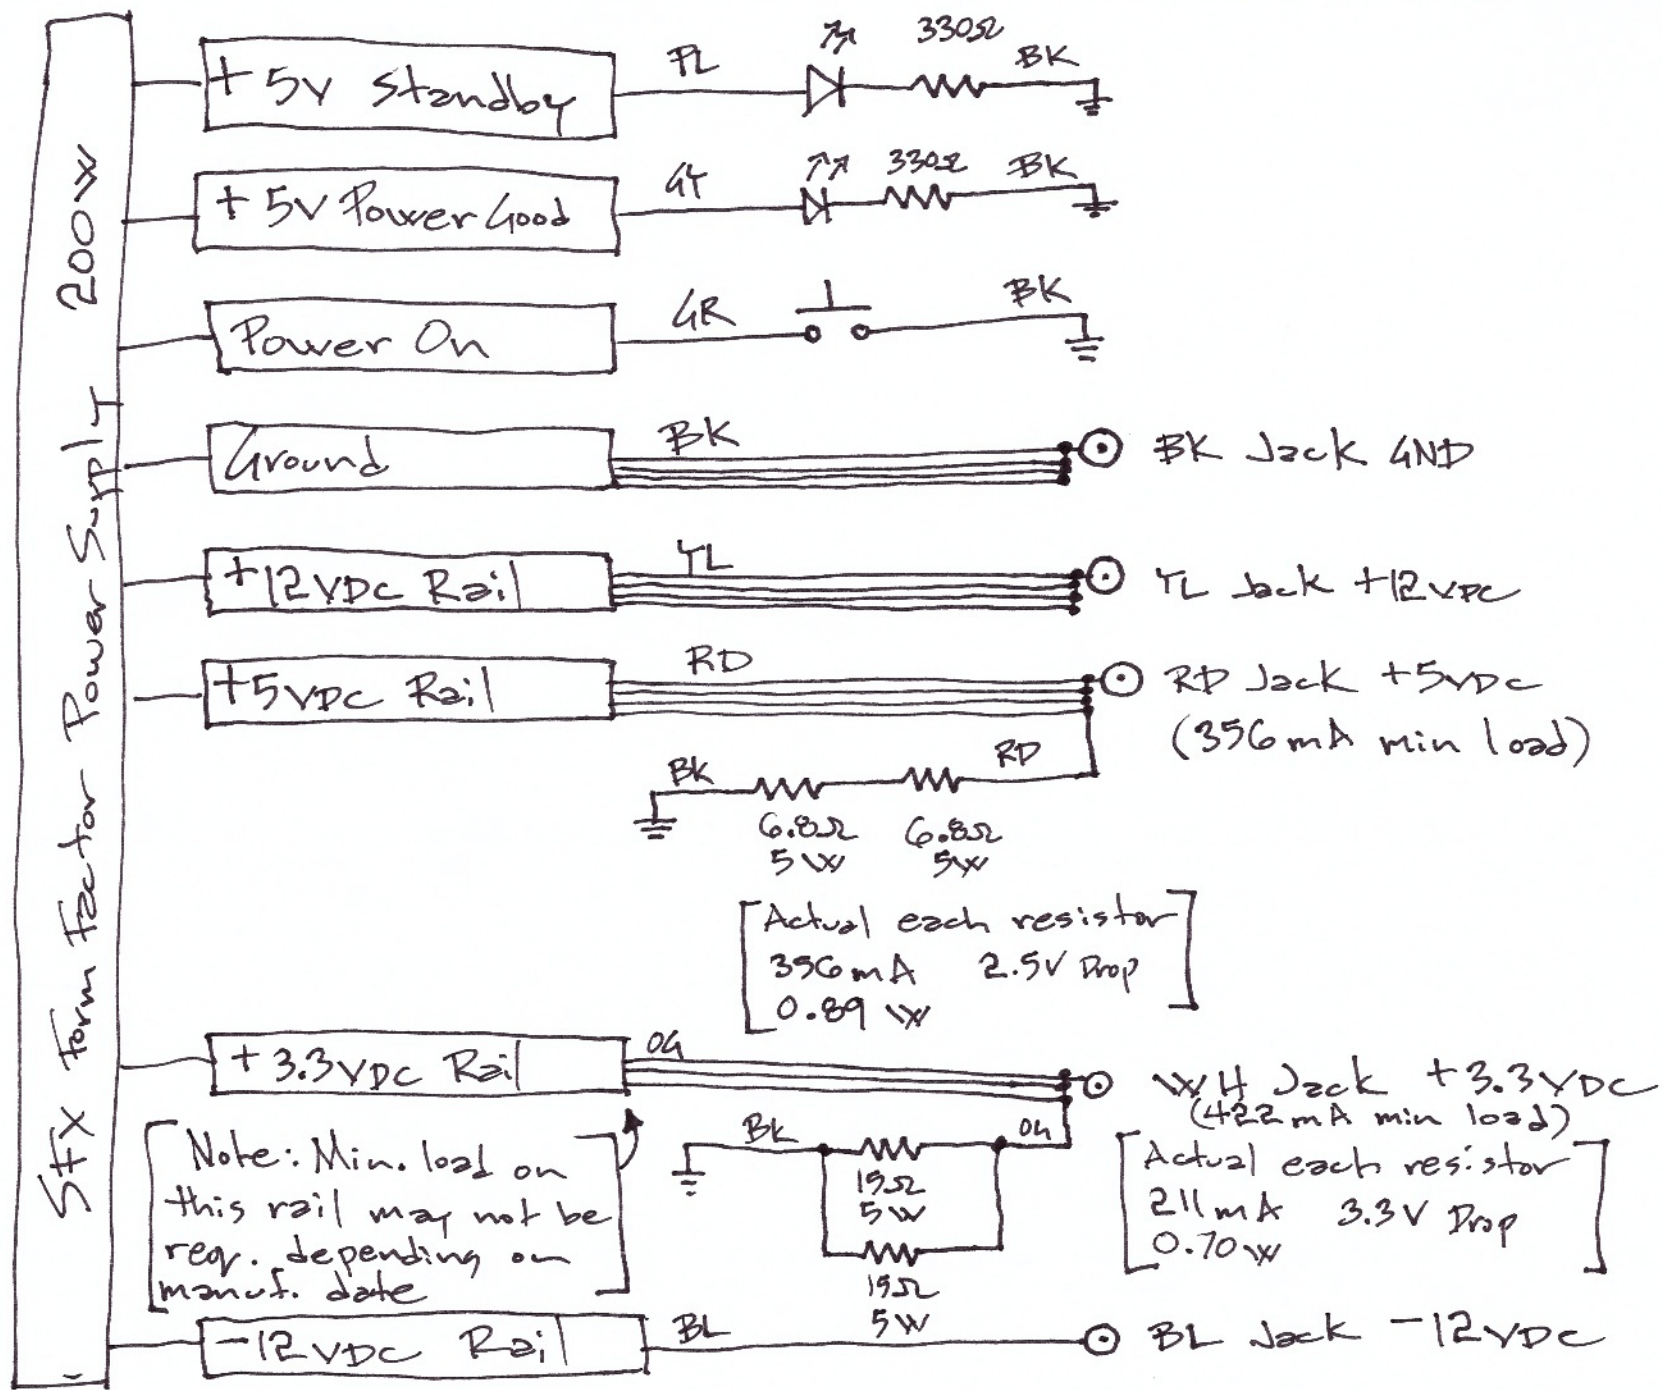 SFX Form Factor Power Supply 200W
+5V Standby
PL
330Ω
BK
+5V Power Good
GY
330Ω
BK
Power On
GR
BK
Ground
BK
BK Jack GND
+12VDC Rail
YL
YL Jack +12VDC
+5VDC Rail
RD
RD Jack +5VDC
(356mA min load)
BK
RD
6.8Ω
5W
6.8Ω
5W
[Actual each resistor
356mA 2.5V Drop
0.89W]
+3.3VDC Rail
OG
WH Jack +3.3VDC
(422mA min load)
[Note: Min. load on
this rail may not be
req. depending on
manuf. date]
BK
OG
15Ω
5W
15Ω
5W
[Actual each resistor
211mA 3.3V Drop
0.70W]
-12VDC Rail
BL
BL Jack -12VDC